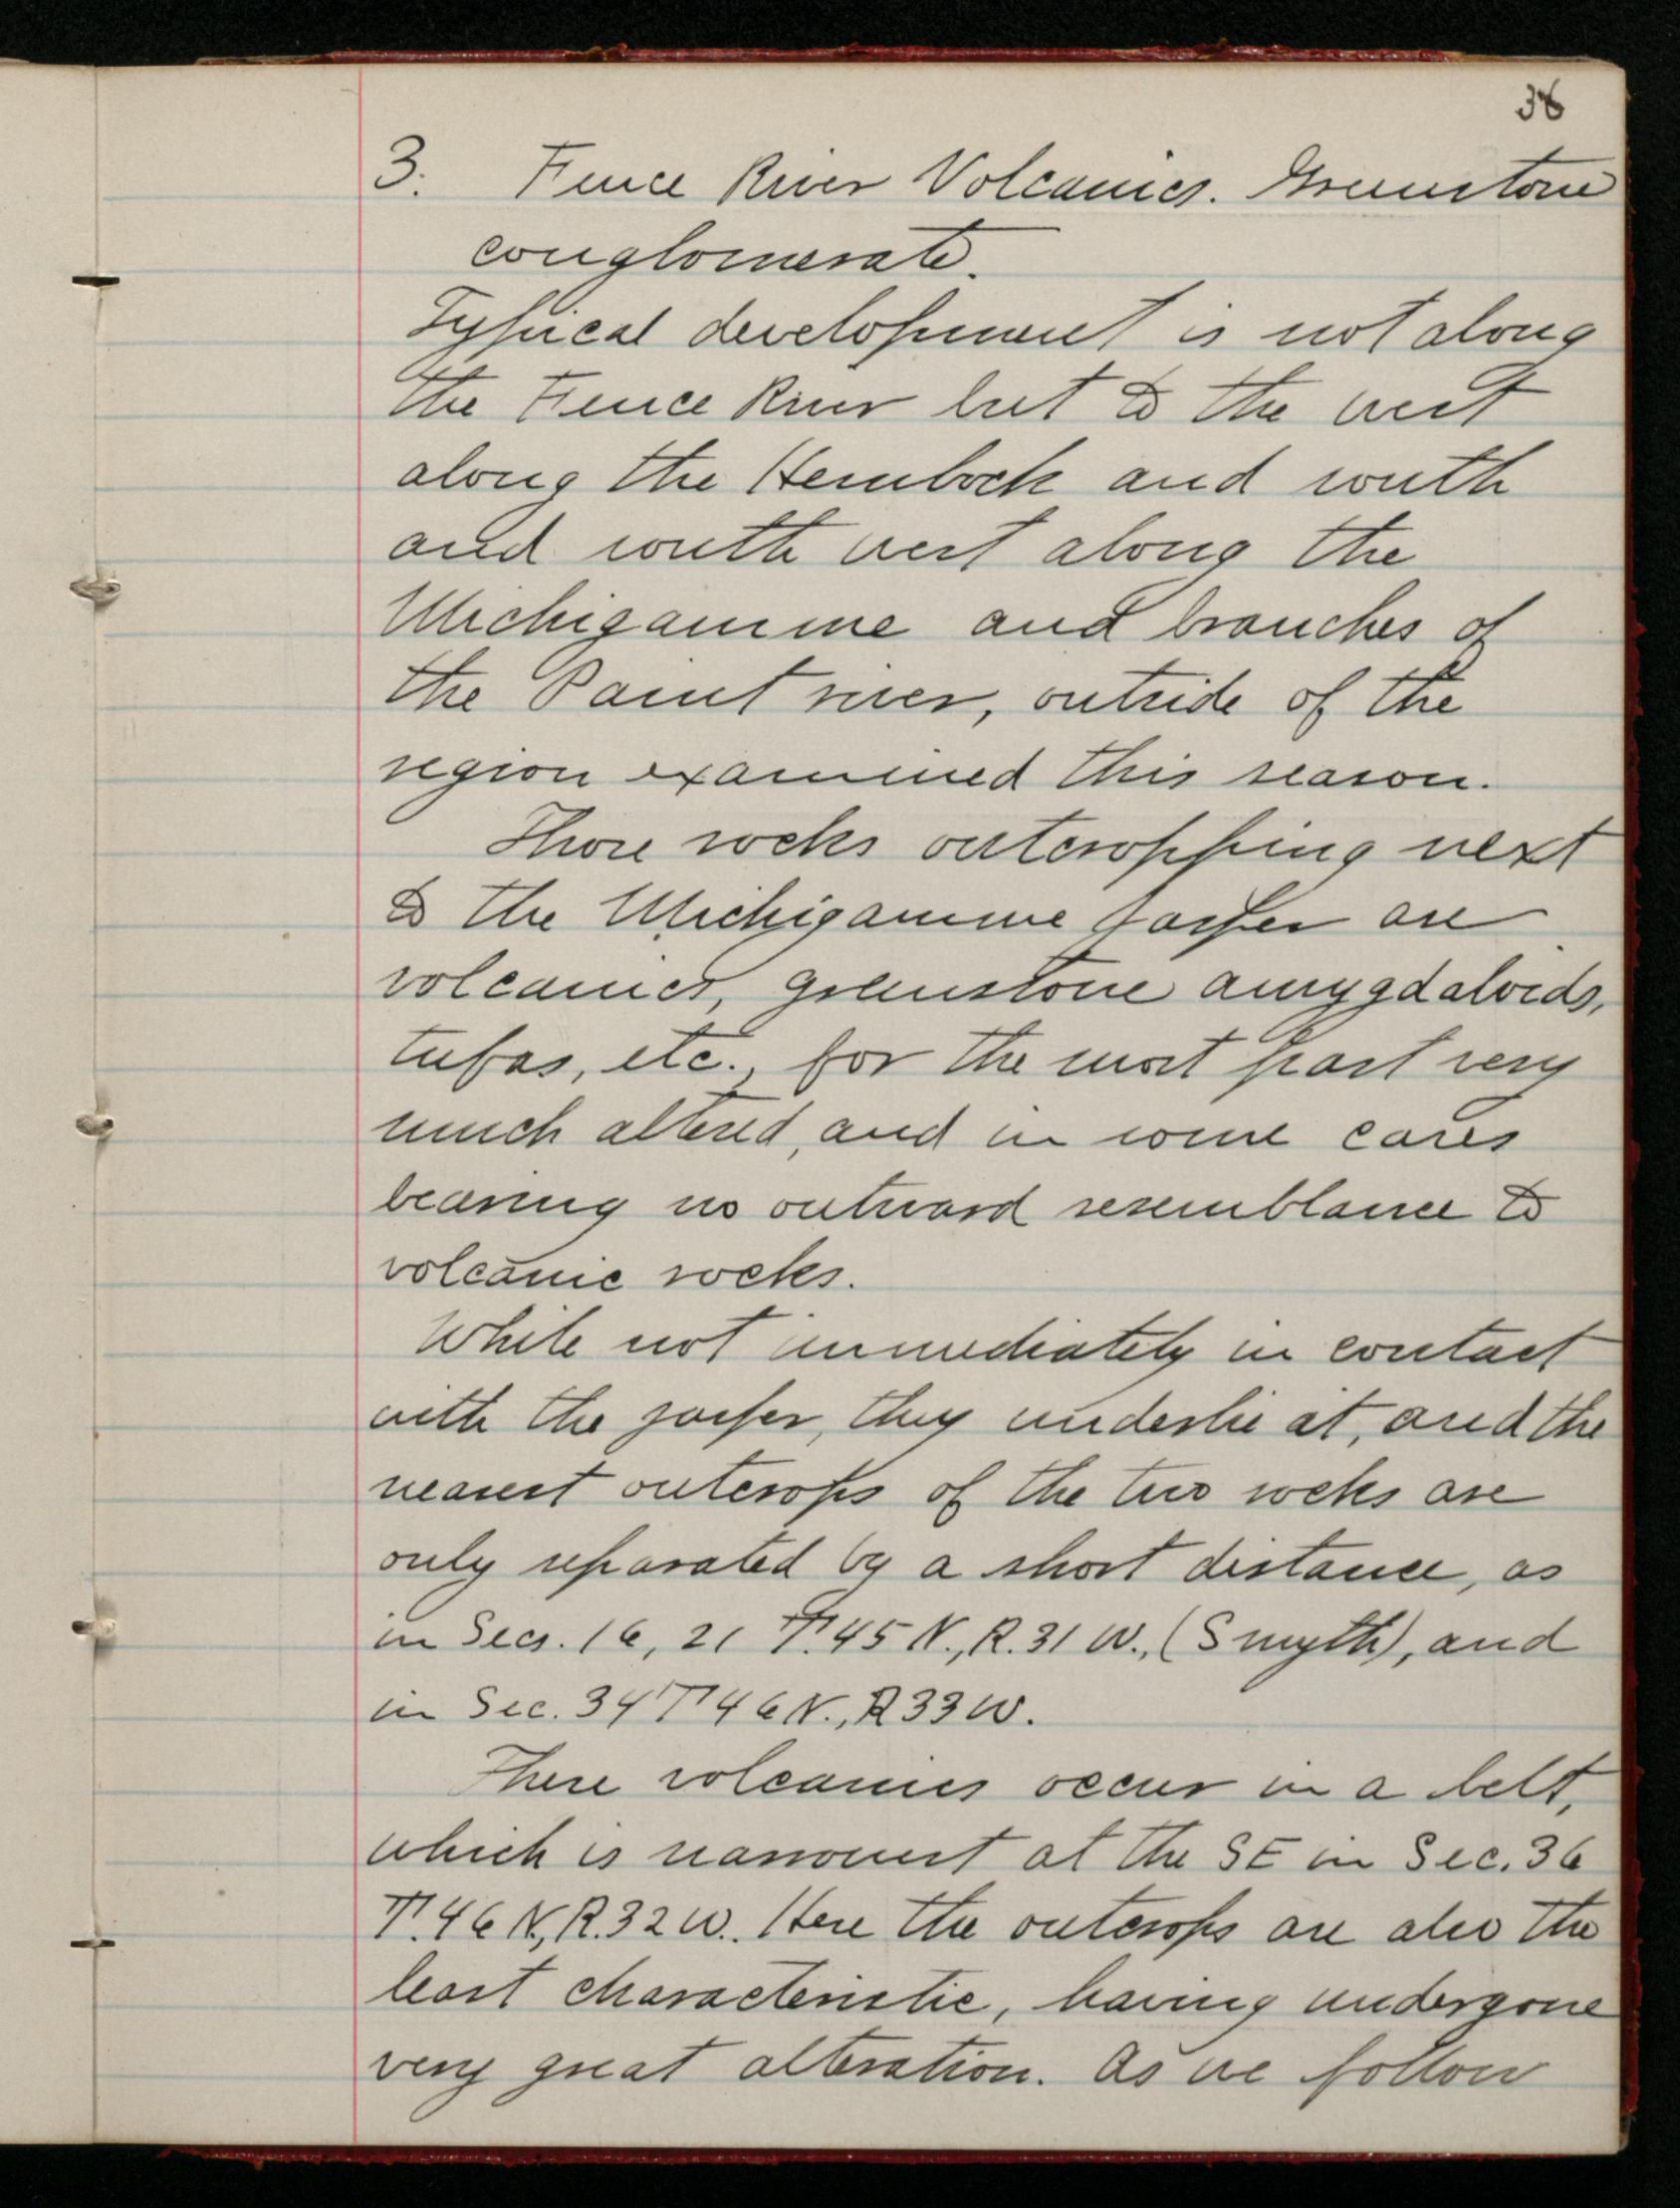 36
3. Fence River Volcanics. Greenstone
conglomerate.
Typical development is not along
the Fence River but to the west
along the Hemlock and south
and south west along the
Michigamme and branches of
the Paint river, outside of the
region examined this season.
Those rocks outcropping next
to the Michigamme jasper are
volcanics, greenstone amygdaloids,
tufas, etc., for the most part very
much altered, and in some cases
bearing no outward resemblance to
volcanic rocks.
While not immediately in contact
with the jasper, they underlie it, and the
nearest outcrops of the two rocks are
only separated by a short distance, as
in Secs. 16, 21 T.45 N., R.31 W., (Smyth), and
in Sec. 34 T 46 N., R 33 W.
These volcanics occur in a belt,
which is narrowest at the SE in Sec. 36
T.46 N., R.32 W.. Here the outcrops are also the
least characteristic, having undergone
very great alteration. As we follow